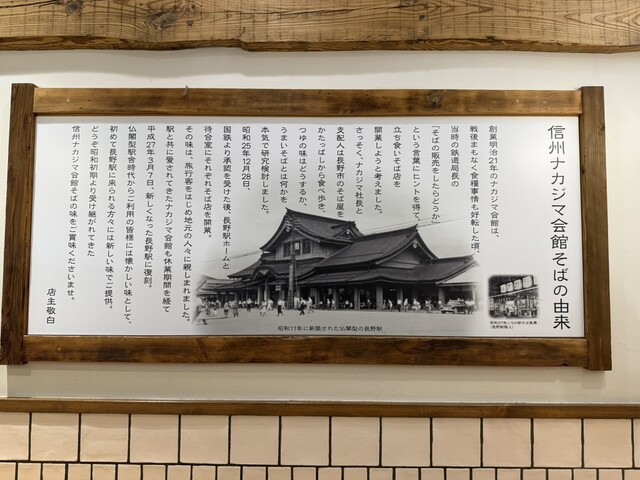 信州ナカジマ会館そばの由来
創業明治21年のナカジマ会館は、
戦後まもなく食糧事情も好転した頃、
当時の鉄道局長の
「そばの販売をしたらどうか」
という言葉にヒントを得て、
立ち食いそば店を
開業しようと考えました。
さっそく、ナカジマ社長と
支配人は長野市のそば屋を
かたっぱしから食べ歩き、
つゆの味はどうするか、
うまいそばとは何かを、
本気で研究検討しました。
昭和25年12月28日、
国鉄より承認を受けた後、長野駅ホームと
待合室にそれぞれそば店を開業。
その味は、旅行客をはじめ地元の人々に親しまれました。
駅と共に愛されてきたナカジマ会館も休業期間を経て
平成27年3月7日、新しくなった長野駅に復刻。
仏閣型駅舎時代からご利用の皆様には懐かしい味として、
初めて長野駅に来られる方々には新しい味でご提供。
どうぞ昭和初期より受け継がれてきた
信州ナカジマ会館そばの味をご賞味くださいませ。
店主敬白
昭和11年に新築された仏閣型の長野駅